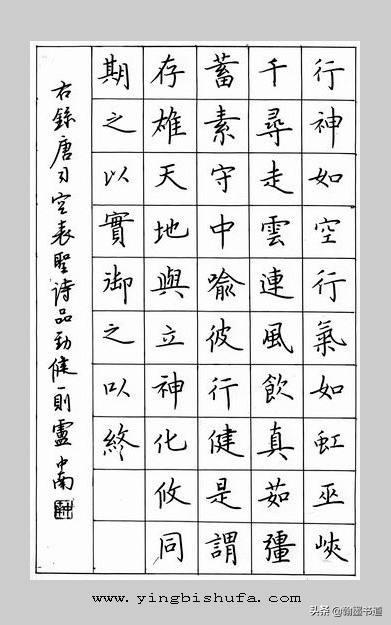 行神如空行氣如虹巫峽
千尋走雲連風飲真茹彊
蓄素守中喻彼行健是謂
存雄天地與立神化攸同
期之以實御之以終
右錄唐司空表聖詩品勁健一則盧中南
www.yingbishufa.com
头条 @翰墨书道